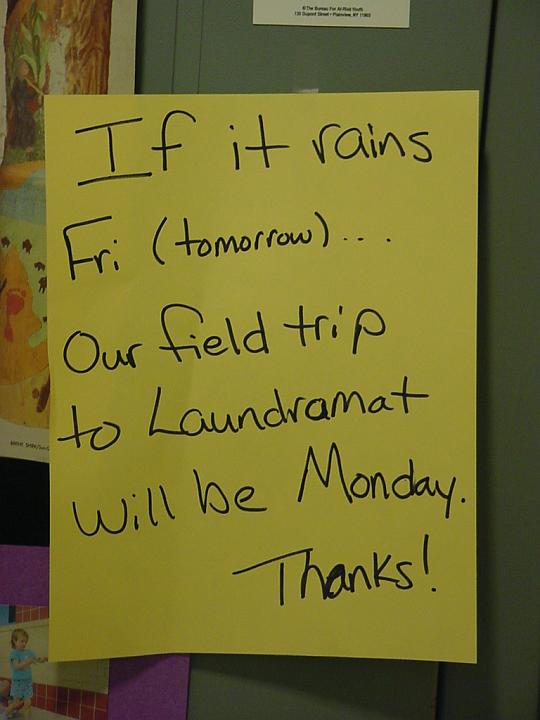 ©The Bureau For At-Risk Youth
135 Dupont Street • Plainview, NY 11803
If it rains
Fri (tomorrow)...
Our field trip
to Laundramat
will be Monday.
Thanks!